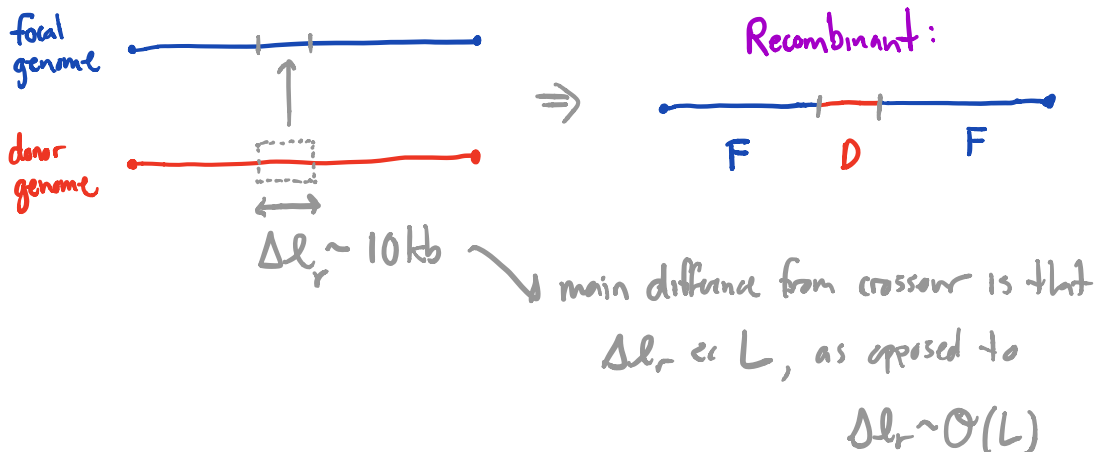 focal
genome
donor
genome
Δℓᵣ ~ 10kb
⇒
Recombinant:
F D F
main difference from crossover is that
Δℓᵣ ≪ L, as opposed to
Δℓᵣ ~ O(L)